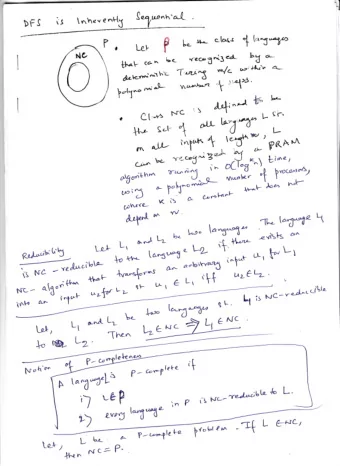 DFS is Inherently Sequential.
P
NC
• Let P be the class of languages
that can be recognized by a
deterministic Turing m/c within a
polynomial number of steps.
• Class NC is defined to be
the set of all languages L st.
on all inputs of length n, L
can be recognized by a PRAM
algorithm running in O(log^k n) time,
using a polynomial number of processors,
where k is a constant that does not
depend on n.
Reducibility Let L1 and L2 be two languages. The language L1
is NC-reducible to the language L2 if there exists an
NC-algorithm that transforms an arbitrary input u1 for L1
into an input u2 for L2 st u1 ∈ L1 iff u2 ∈ L2.
Let, L1 and L2 be two languages st. L1 is NC-reducible
to L2. Then L2 ∈ NC ⇒ L1 ∈ NC.
Notion of P-completeness
A language L is P-complete if
i) L ∈ P
2) every language in P is NC-reducible to L.
Let, L be a P-complete problem. If L ∈ NC,
then NC = P.